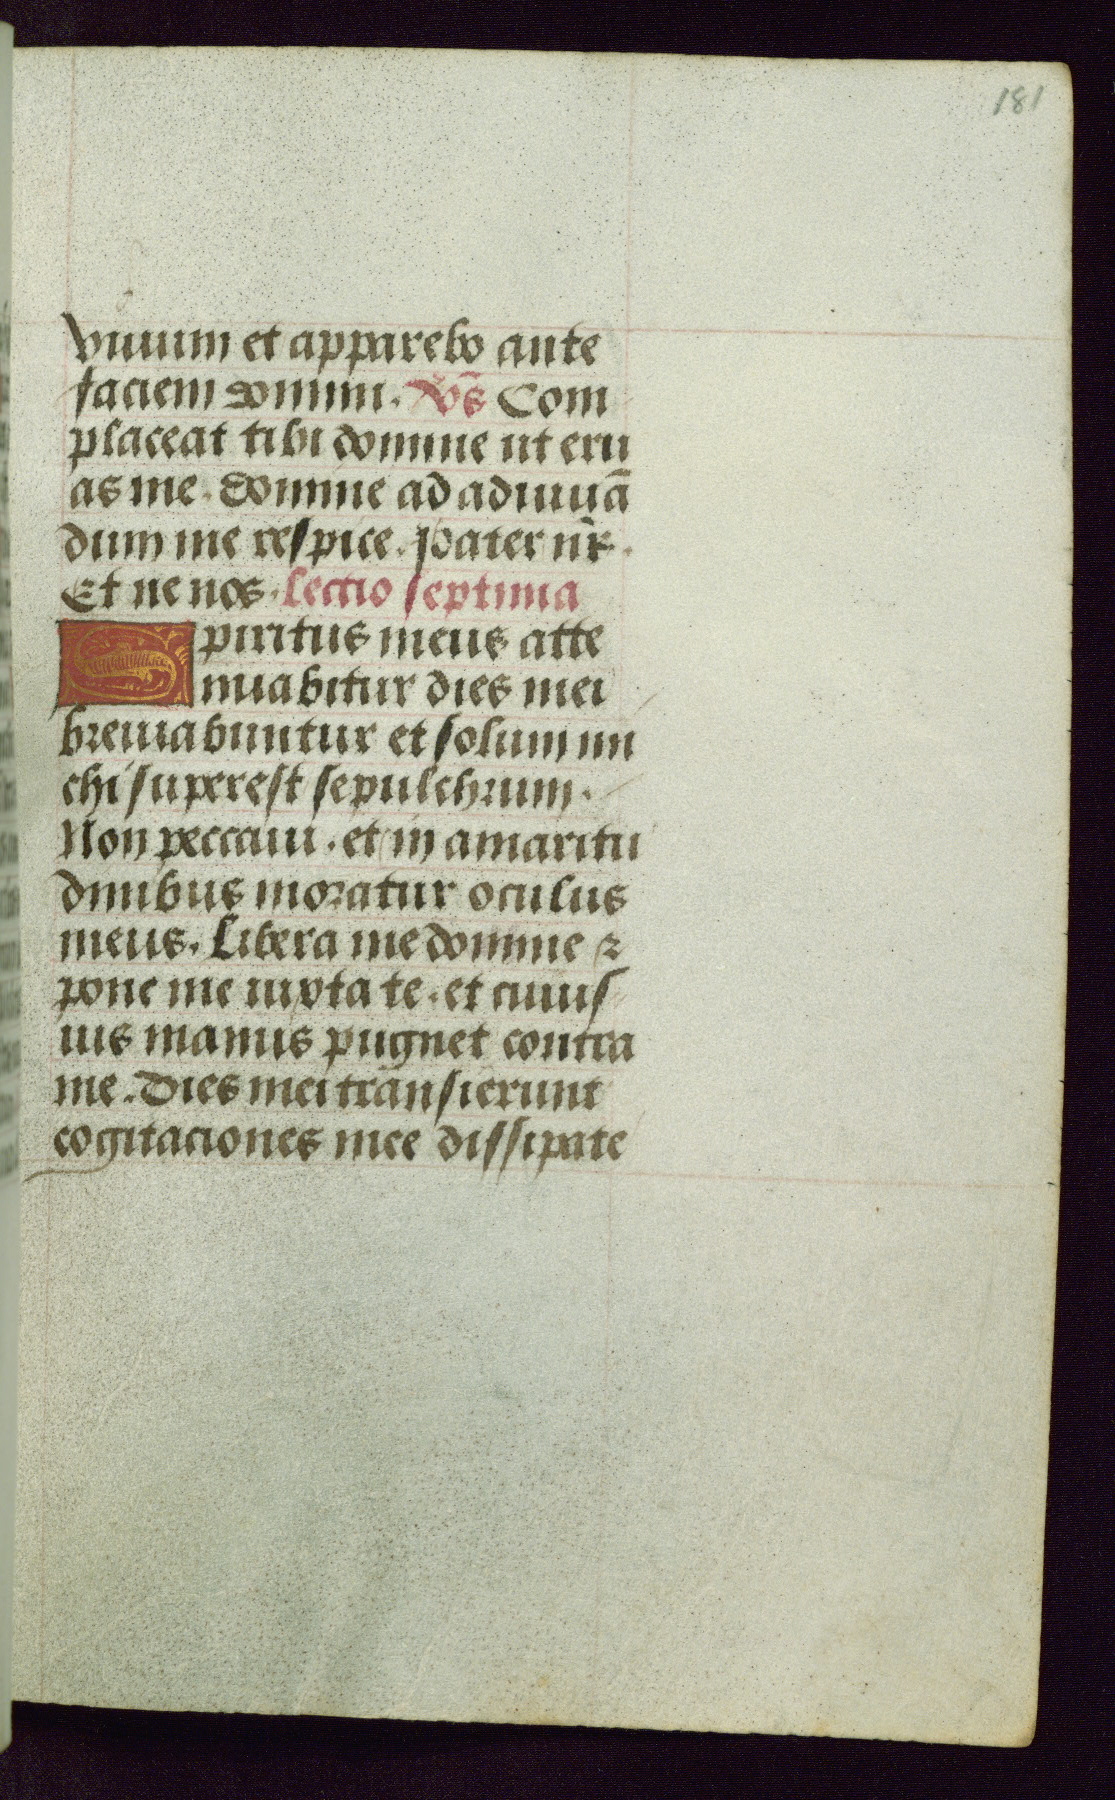 181
viuum et apparebo ante
faciem domini. Vs̄ Com
placeat tibi domine ut eru
as me. Domine ad adiuuā
dum me respice. Pater nr̄.
Et ne nos. Lectio septima
Spiritus meus atte
nuabitur dies mei
breuiabuntur et solum mi
chi superest sepulchrum.
Non peccaui. et in amaritu
dinibus moratur oculus
meus. Libera me domine ⁊
pone me iuxta te. et cuius
uis manus pugnet contra
me. Dies mei transierunt
cogitaciones mee dissipate